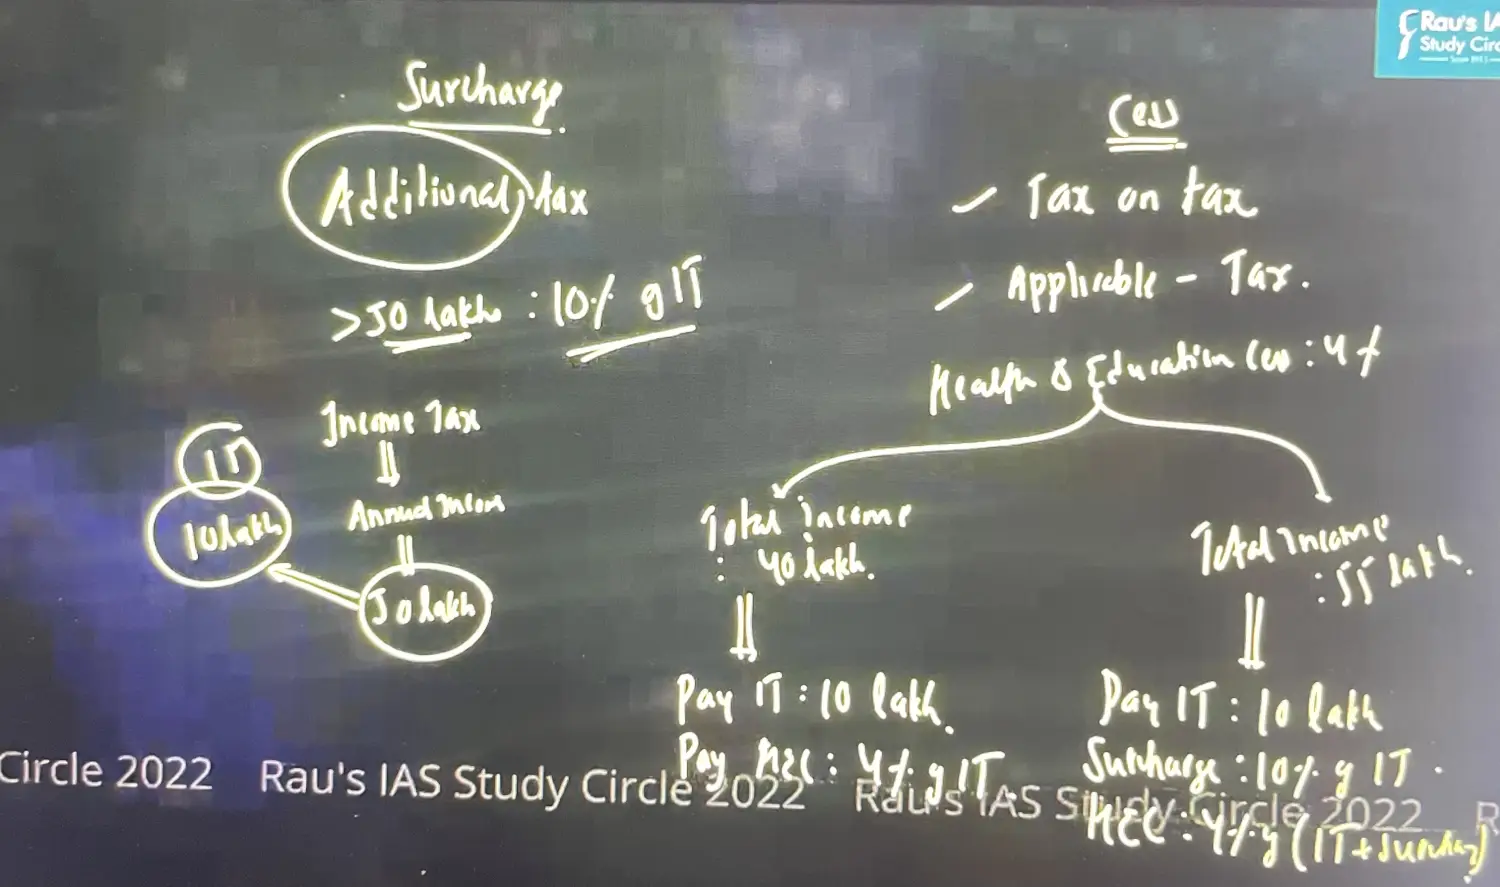 Rau's IA
Study Circ
Surcharge
Additional tax
>50 lakhs : 10% of IT
Income Tax
IT
Annual Income
10 lakh
50 lakh
Cess
Tax on tax
Applicable - Tax.
Health & Education Cess : 4%
Total income
: 40 lakh.
Pay IT : 10 lakh.
Pay HEC : 4% of IT.
Total Income
: 55 lakh.
Pay IT : 10 lakh
Surcharge : 10% of IT.
HEC : 4% of (IT + Surcharge)
Circle 2022 Rau's IAS Study Circle 2022 Rau's IAS Study Circle 2022 R